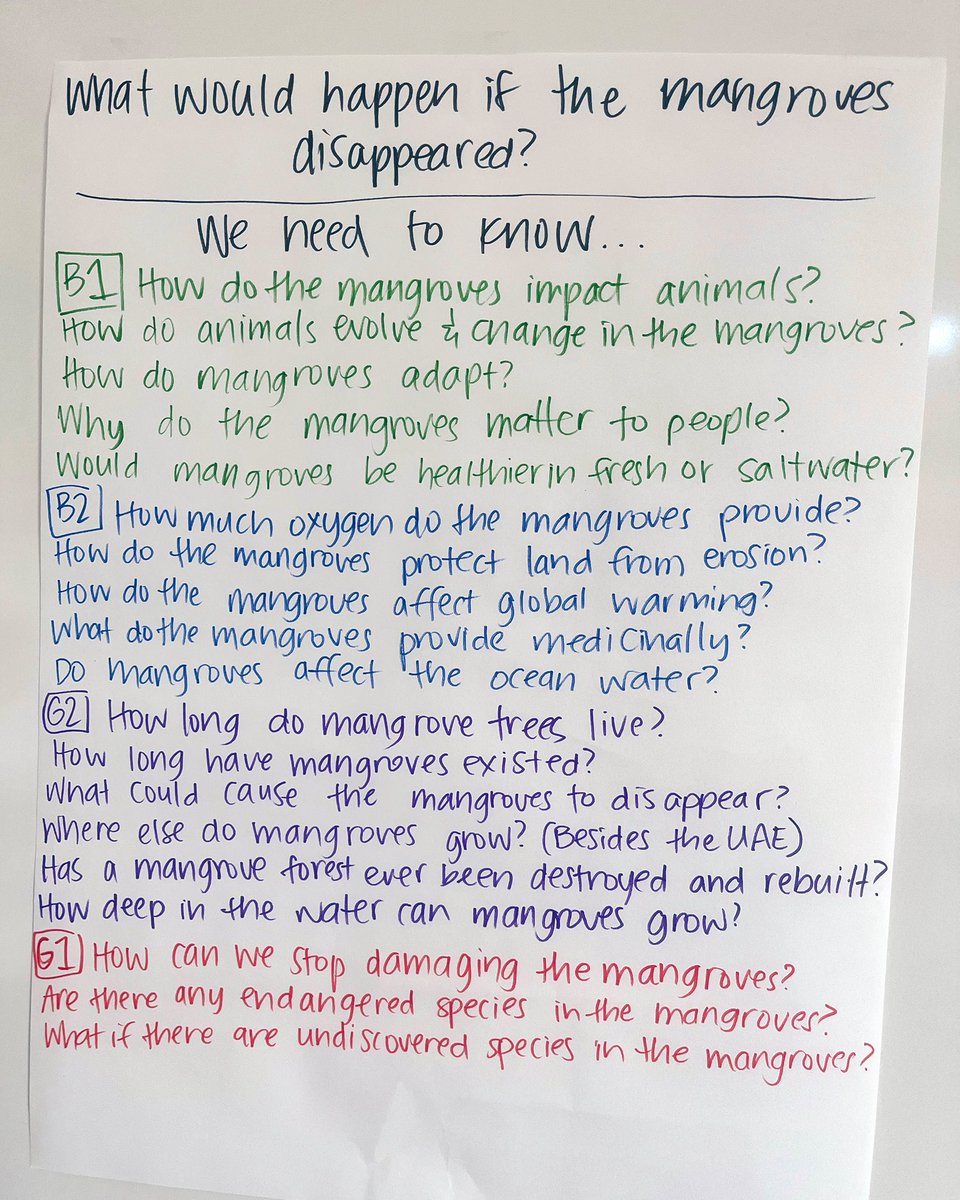 What would happen if the mangroves
disappeared?
We need to know...
B1 How do the mangroves impact animals?
How do animals evolve & change in the mangroves?
How do mangroves adapt?
Why do the mangroves matter to people?
Would mangroves be healthier in fresh or saltwater?
B2 How much oxygen do the mangroves provide?
How do the mangroves protect land from erosion?
How do the mangroves affect global warming?
What do the mangroves provide medicinally?
Do mangroves affect the ocean water?
G2 How long do mangrove trees live?
How long have mangroves existed?
What could cause the mangroves to disappear?
Where else do mangroves grow? (Besides the UAE)
Has a mangrove forest ever been destroyed and rebuilt?
How deep in the water can mangroves grow?
G1 How can we stop damaging the mangroves?
Are there any endangered species in the mangroves?
What if there are undiscovered species in the mangroves?